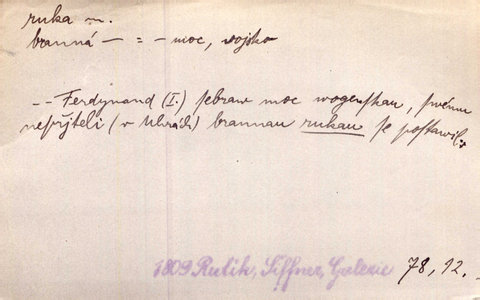 ruka ~.
branná — = - moc, vojsko
-- Ferdynand (I.) sebraw moc wogenskau, swému
nepřjteli (v Uhrách) brannau rukau se postawil.
1809 Rulík, Siffner, Galerie 78, 12.